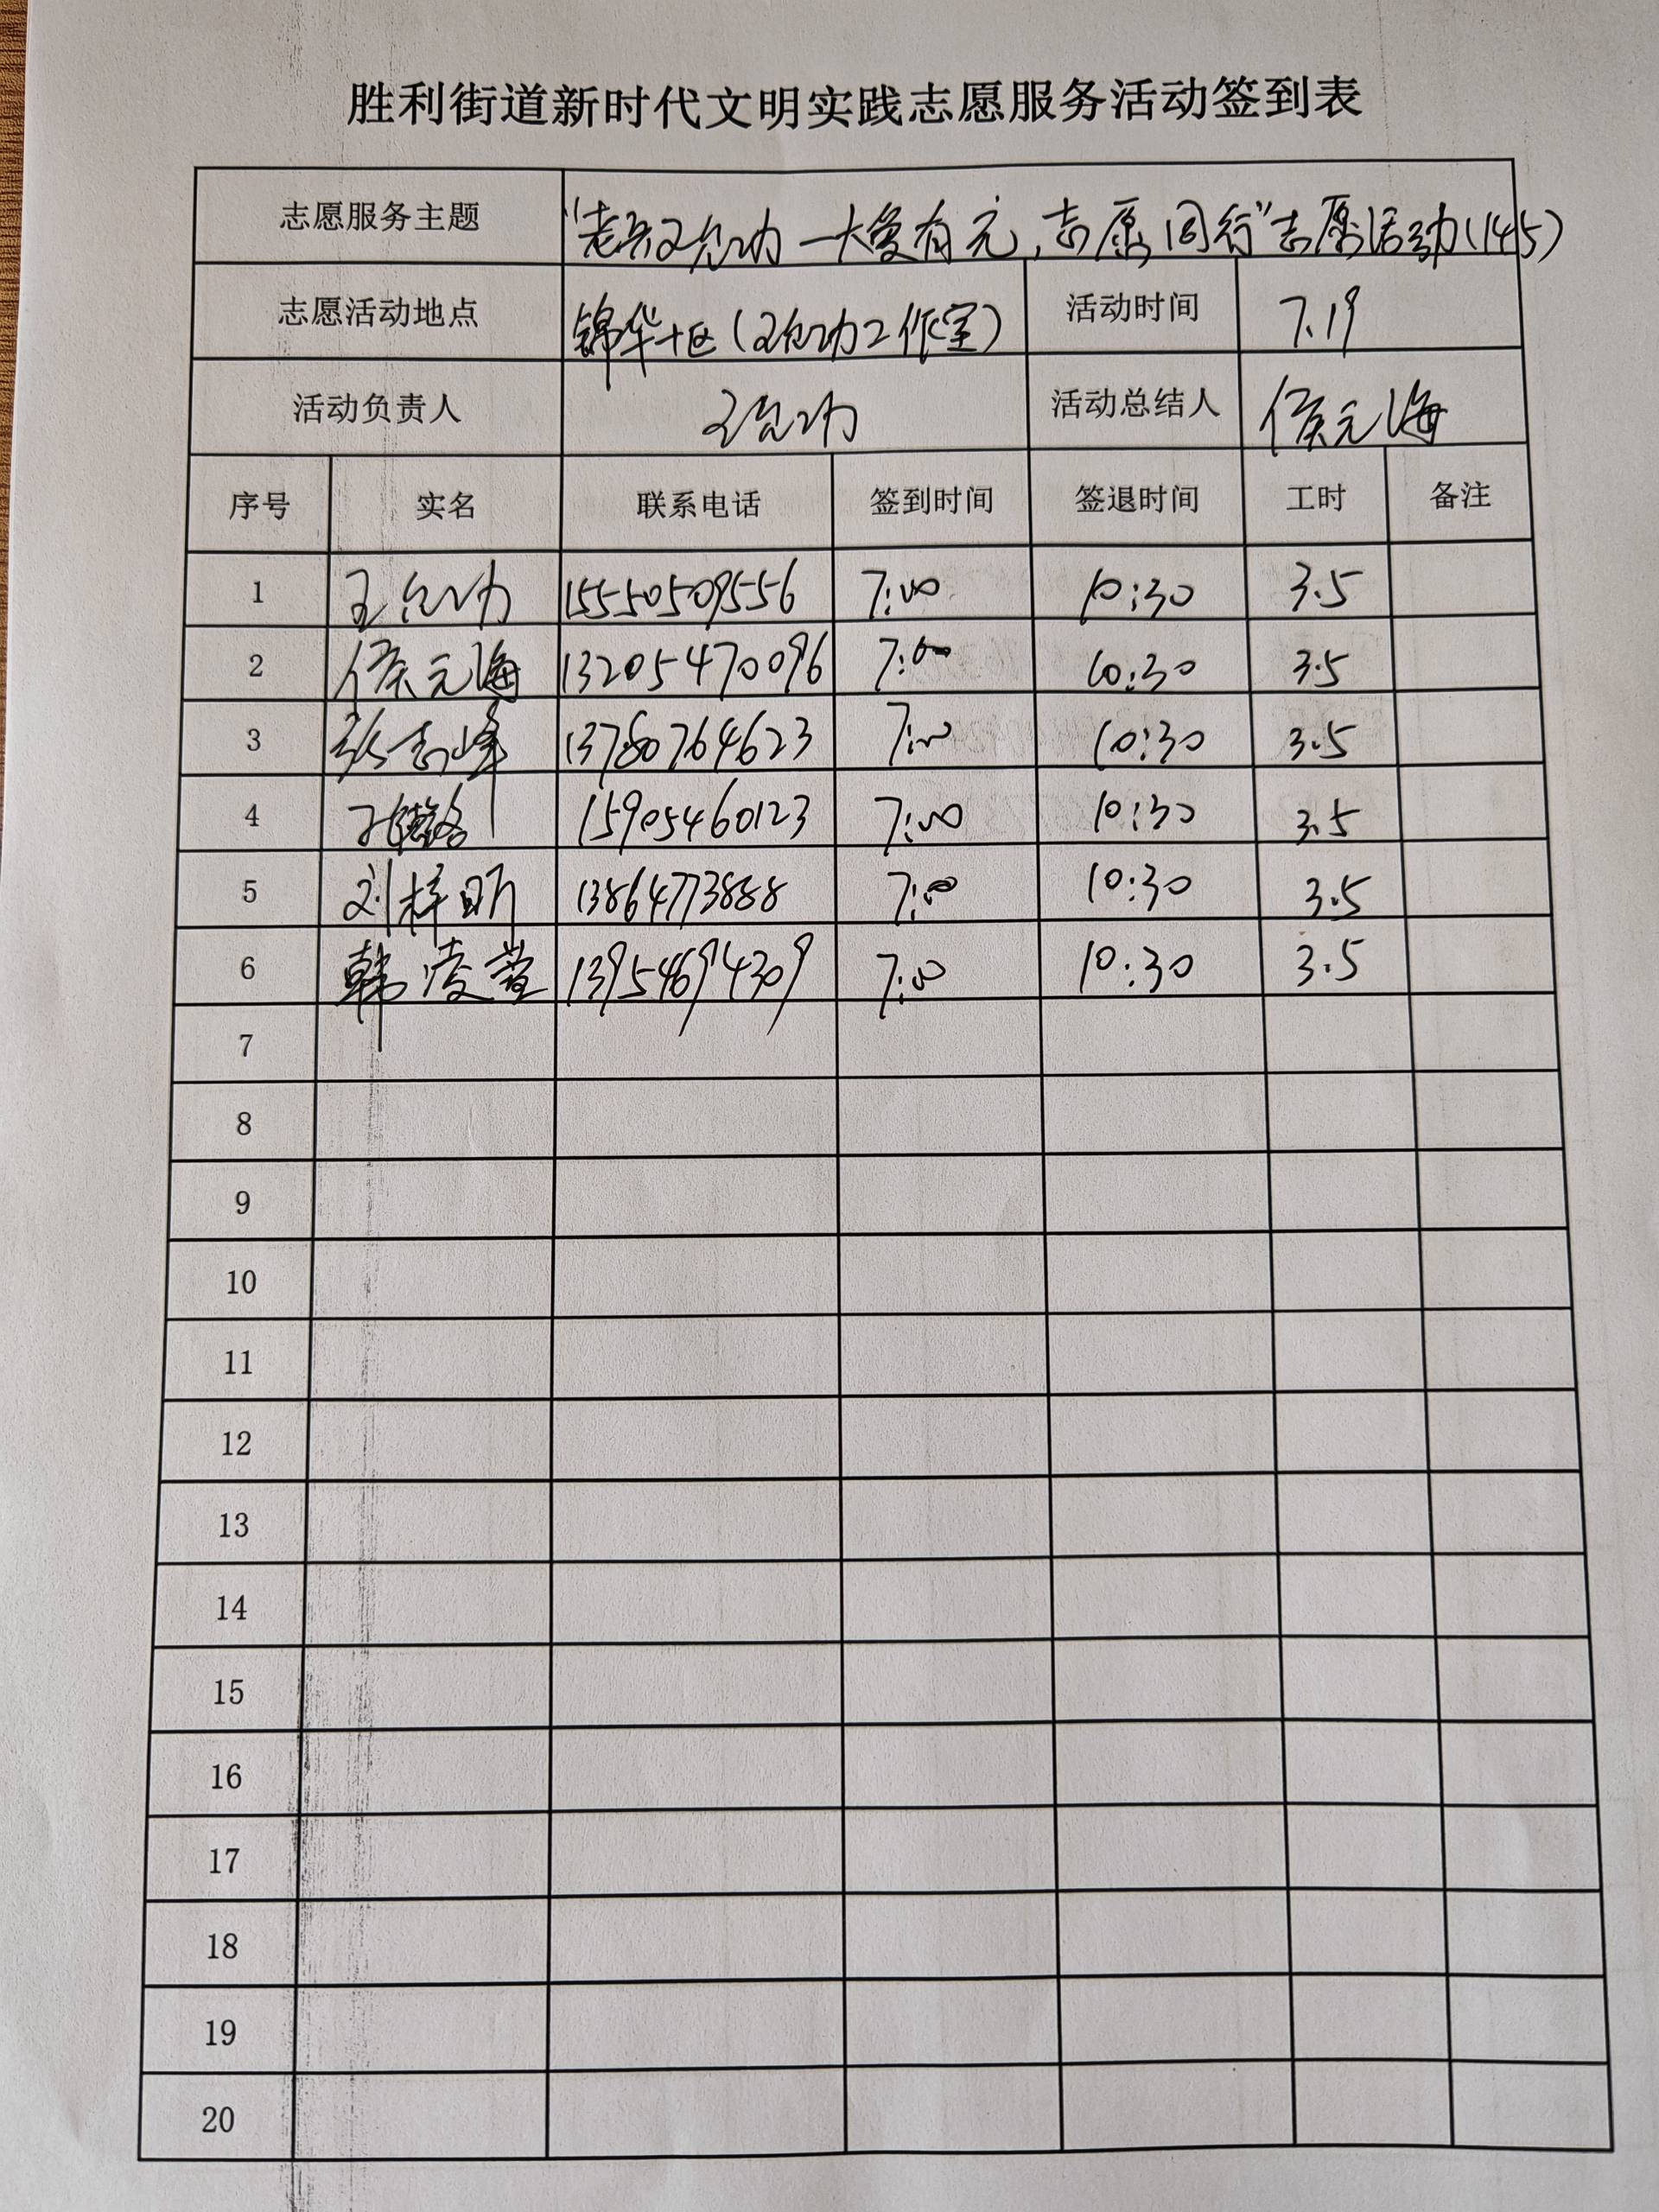 胜利街道新时代文明实践志愿服务活动签到表
志愿服务主题 "老兵王允功一大爱有元,志愿同行"志愿活动(145)
志愿活动地点 锦华十区(王允功工作室) 活动时间 7.19
活动负责人 王允功 活动总结人 侯元海
序号 实名 联系电话 签到时间 签退时间 工时 备注
1 王允功 15550509556 7:00 10:30 3.5
2 侯元海 13205470096 7:00 10:30 3.5
3 张志峰 13780764623 7:00 10:30 3.5
4 15905460123 7:00 10:30 3.5
5 刘梓昕 13864773888 7:00 10:30 3.5
6 韩凌萱 13954694309 7:00 10:30 3.5
7
8
9
10
11
12
13
14
15
16
17
18
19
20